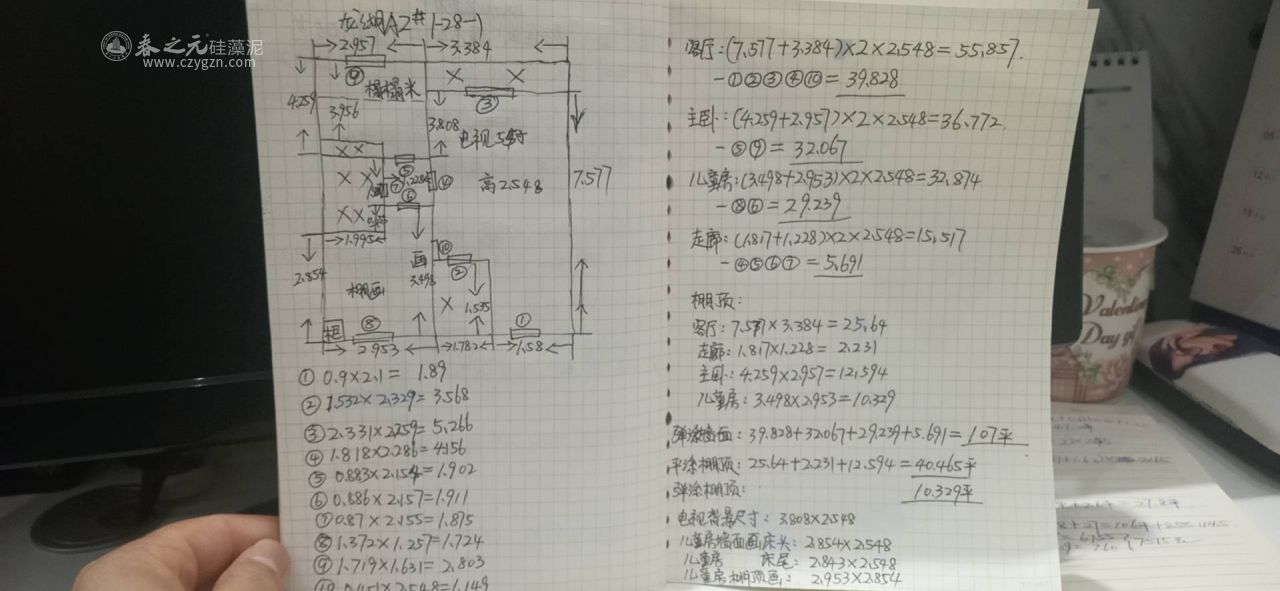 春之元硅藻泥
www.czygzn.com
龙湖A2#1-28-1
2.957
3.384
⑨
榻榻米
③
4.259
3.956
3.808
电视
⑤
⑦
1.228
④
高2.548
7.577
⑥
1.995
⑩
画
②
2.854
棚画
3.498
1.535
柜
⑧
①
2.953
1.782
1.58
① 0.9×2.1= 1.89
② 1.532×2.329=3.568
③ 2.331×2.259=5.266
④ 1.818×2.286=4.156
⑤ 0.883×2.154=1.902
⑥ 0.886×2.157=1.911
⑦ 0.87×2.155=1.875
⑧ 1.372×1.257=1.724
⑨ 1.719×1.631=2.803
⑩ 0.451×2.548=1.149
客厅:(7.577+3.384)×2×2.548=55.857.
-①②③④⑩=39.828
主卧:(4.259+2.957)×2×2.548=36.772.
-⑤⑨=32.067
儿童房:(3.498+2.953)×2×2.548=32.874
-⑧⑥=29.239
走廊:(1.817+1.228)×2×2.548=15.517
-④⑤⑥⑦=5.691
棚顶:
客厅:7.577×3.384=25.64
走廊:1.817×1.228=2.231
主卧:4.259×2.957=12.594
儿童房:3.498×2.953=10.329
弹涂墙面:39.828+32.067+29.239+5.691=107平
平涂棚顶:25.64+2.231+12.594=40.465平
弹涂棚顶: 10.329平
电视背景尺寸:3.808×2.548
儿童房墙面画床头:2.854×2.548
儿童房 床尾:2.843×2.548
儿童房棚顶画:2.953×2.854
Valentine
Day